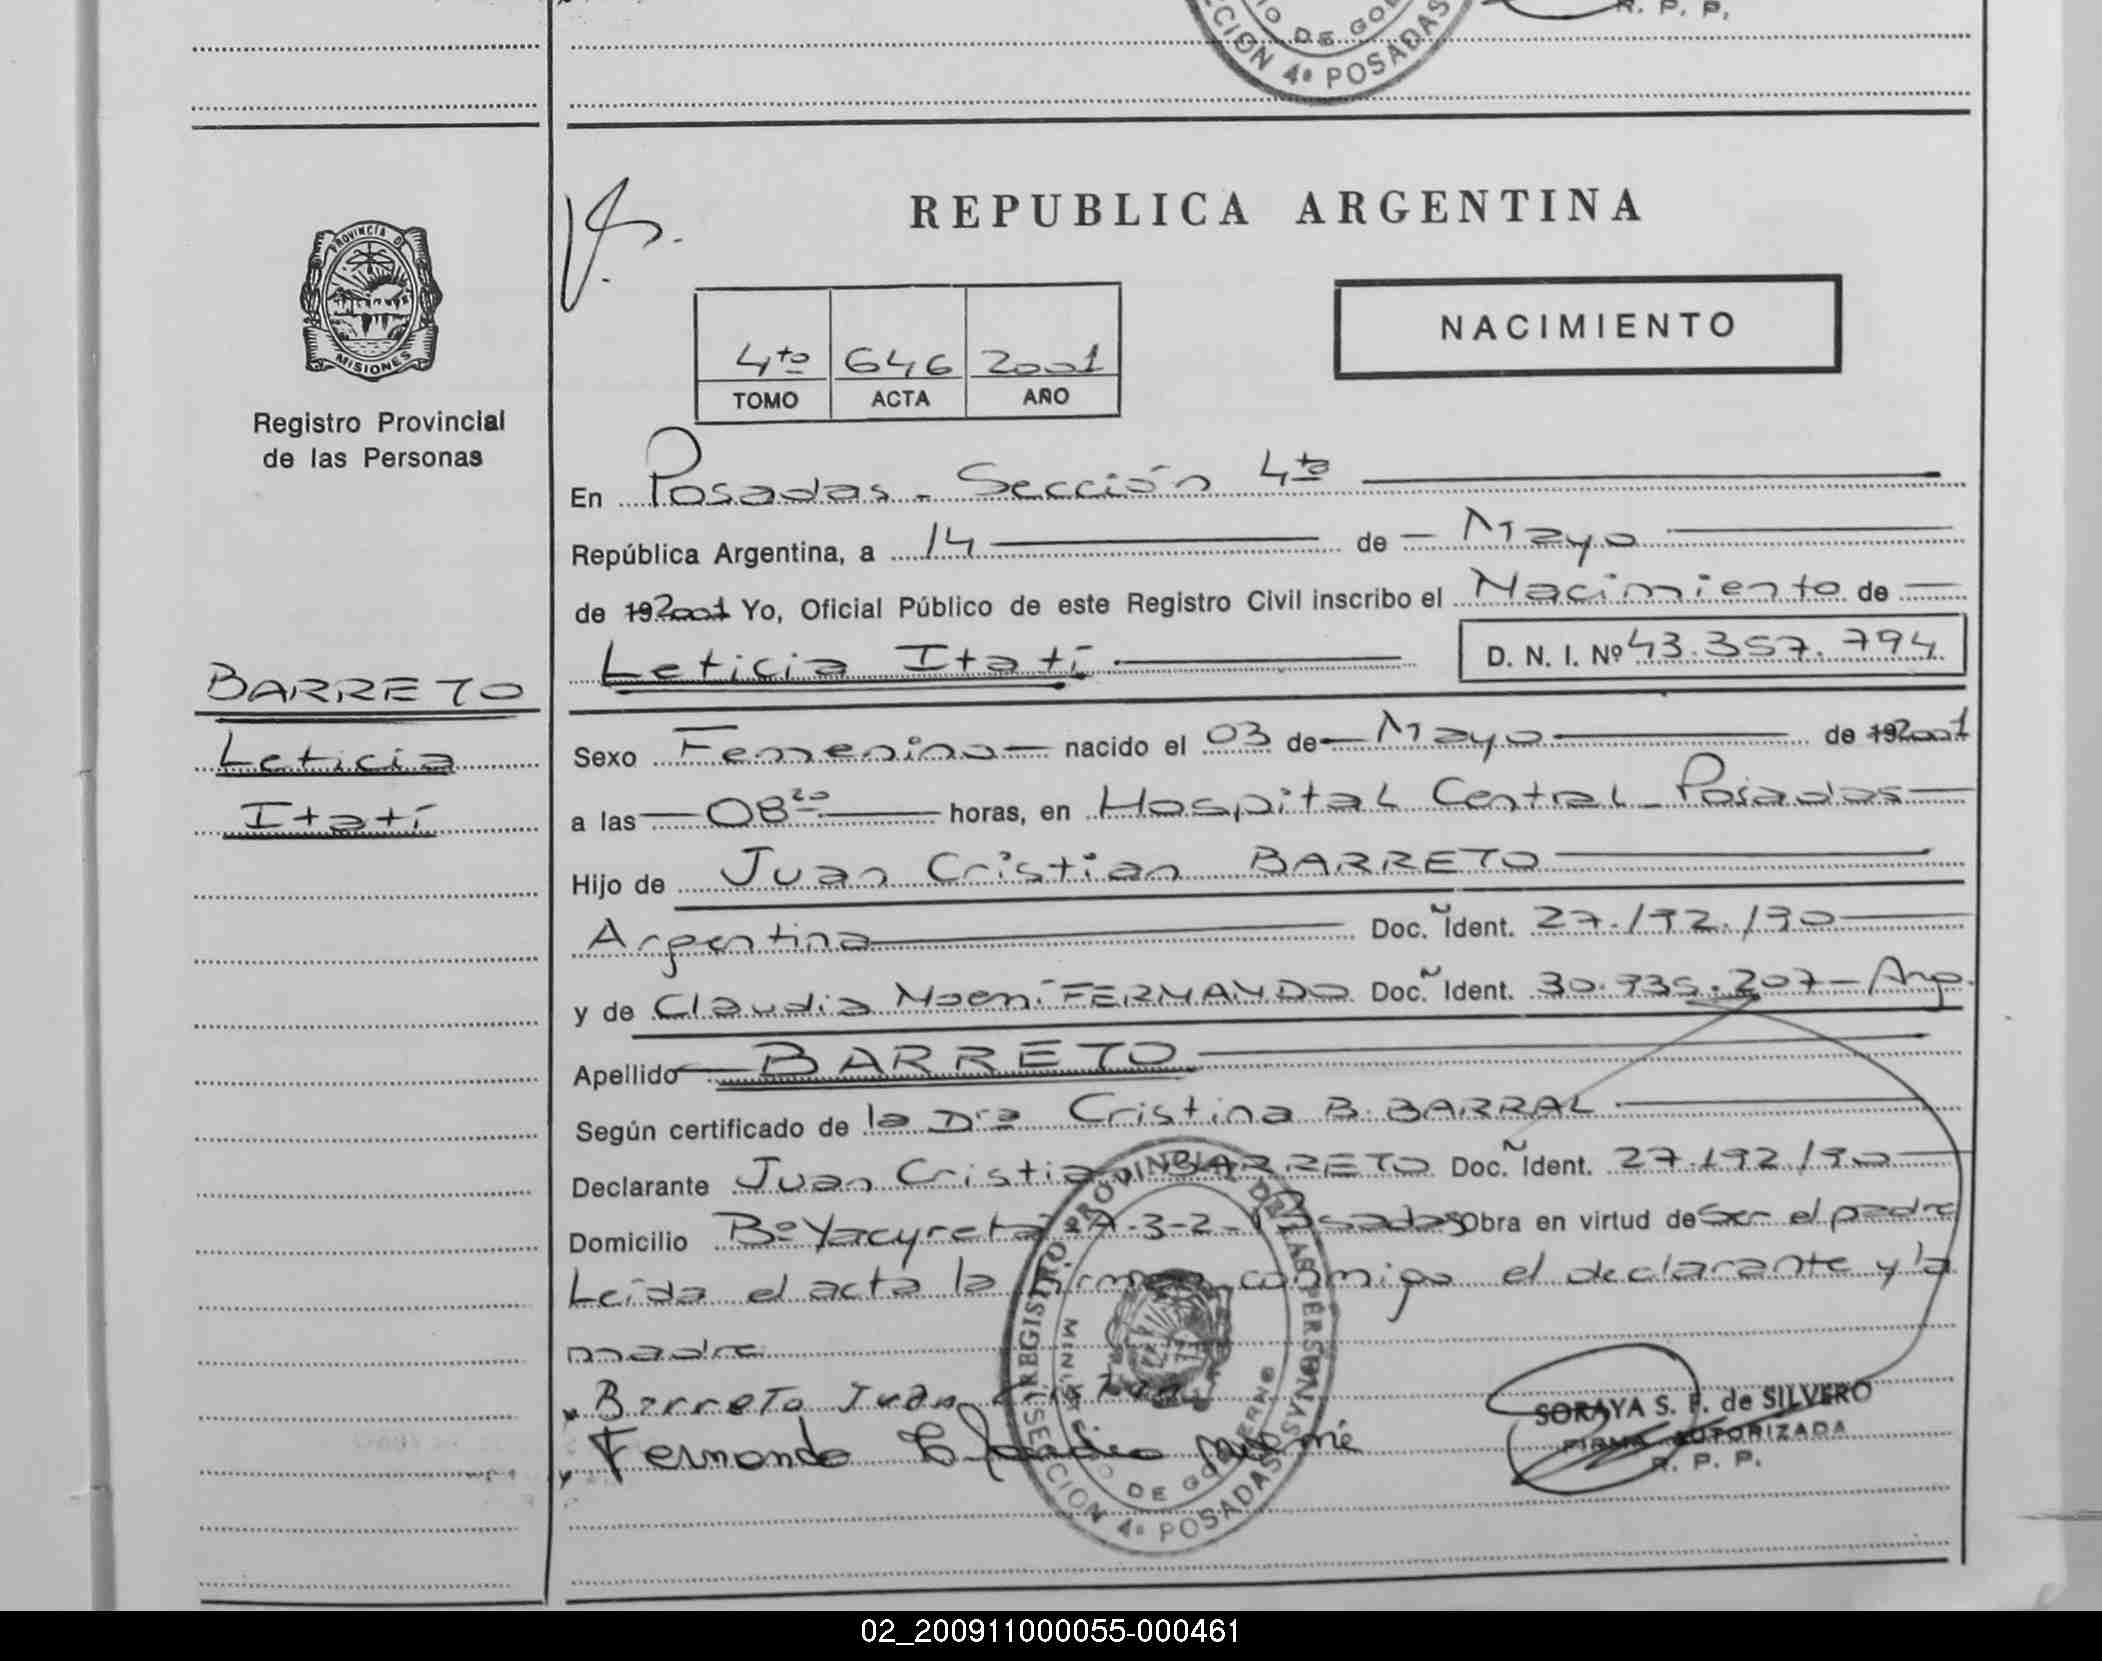 R. P. P.
CCION 4ª POSADAS
DE GO
REPUBLICA ARGENTINA
PROVINCIA DE
MISIONES
Registro Provincial
de las Personas
NACIMIENTO
4to 646 2001
TOMO ACTA AÑO
En Posadas - Sección 4ta
República Argentina, a 14 de Mayo
de 192001 Yo, Oficial Público de este Registro Civil inscribo el Nacimiento de
Leticia Itatí D. N. I. Nº 43.357.794
BARRETO
Leticia
Itatí
Sexo Femenino nacido el 03 de Mayo de 192001
a las 08 20 horas, en Hospital Central - Posadas
Hijo de Juan Cristian BARRETO
Argentina Doc. Ident. 27.192.190
y de Claudia Noemí FERNANDO Doc. Ident. 30.935.207 - Arg.
Apellido BARRETO
Según certificado de la Dra Cristina B. BARRAL
Declarante Juan Cristian BARRETO Doc. Ident. 27.192.190
Domicilio Bº Yacyretá 3-2 - Posadas Obra en virtud de ser el padre
Leída el acta la firman conmigo el declarante y la
madre
Barreto Juan
Fernando Claudia
REGISTRO PROVINCIAL DE LAS PERSONAS
SECCION 4ª POSADAS
DE GOBIERNO
SORAYA S. F. de SILVERO
FIRMA AUTORIZADA
R. P. P.
02_200911000055-000461